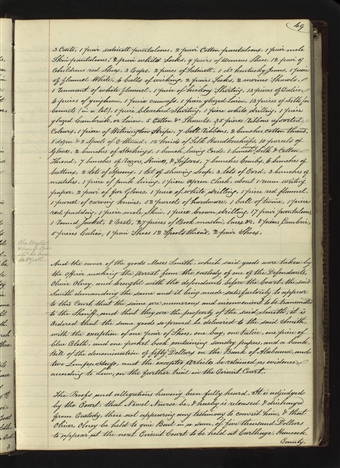 49
3 Coats, 1 pair satinett pantaloons, 2 pair Cotton pantaloons, 1 pair mole
Skin pantaloons, 2 pair white Socks, 9 pairs of womens Shoes, 12 pair of
Childrens red Shoes, 3 Caps, 2 pieces of Satinett, 1 Kentucky jeans, 1 piece
of flannel White, 4 balls of wicking, 2 pair Socks, 2 worsted Shawls,
1 Remnant of white flannel, 1 piece of Hickory Shirting, 13 pieces of Calico,
2 pieces of gingham, 1 piece canvass, 1 piece glazed linen, 12 pieces of
1 piece bleached Shirting, 1 piece white drilling, 1 piece
glazed Cambrick or linen, 5 Cotton & Shawls, 25 pieces Ribbons assorted
Colours, 1 piece of Wilmington Stripe, 7 bolt Ribbons, 2 bunches cotton thread,
& 2 Spools of thread, 13 Yards of Silk Handkerchiefs, 10 parcels of
Spools, 2 bunches of Stockings, 1 bunch Silk & Cotton
Thread, 7 bunches of Knives, & Scissors, 7 bunches Combs, 6 bunches of
buttons, 2 lots of Spoons, 1 lot of shaving Soap, 2 lots of Cord, 2 bunches of
matches, 1 piece of Apron Check, about 1 ream writing
paper, 2 pair of fur Gloves, 1 piece of white drilling, 1 piece red flannel,
1 parcel of carving knives, 52 parcels of hardware, 1 bolt of linen, 1 piece
red padding, 1 piece mole skin, 1 piece brown drilling, 17 pair pantaloons,
1 Round jacket, 2 Vests, 27 pieces of Book muslin, lace &c. 2 pieces Cambric,
5 pieces Calico, 1 pair Shoes, 12 Spools thread, 2 pair Shoes.
And the owner of the goods Moses Smith, which said goods were taken by
the officer making the arrest from the custody of one of the Defendants,
Oliver Olney, and brought with the defendants before the Court, the said
Smith demanding the same and it being made satisfactorily to appear
to this Court that the same are numerous and inconvenient to be transmitted
to the Sheriff, and that they are the property of the said Smith; it is
ordered that the same goods as aforesaid be delivered to the said Smith,
with the exception of one pair of Shoes, one bag, one Valise, one piece of
blue Cloth, and one pocket book containing sundry papers, and a bank
Bill of the denomination of fifty Dollars on the Bank of Alabama, and
two and the excepted articles be retained as evidence
according to law, on the further trial in the Circuit Court.
The Proofs and allegations having been fully heard. It is adjudged
by the Court that Newel Nurse be, & hereby is released & discharged
from Custody, there not appearing any testimony to convict him, & that
Oliver Olney be held to give Bail in a sum of five thousand Dollars
to appear at the next Circuit Court to be held at Carthage, Hancock
County.